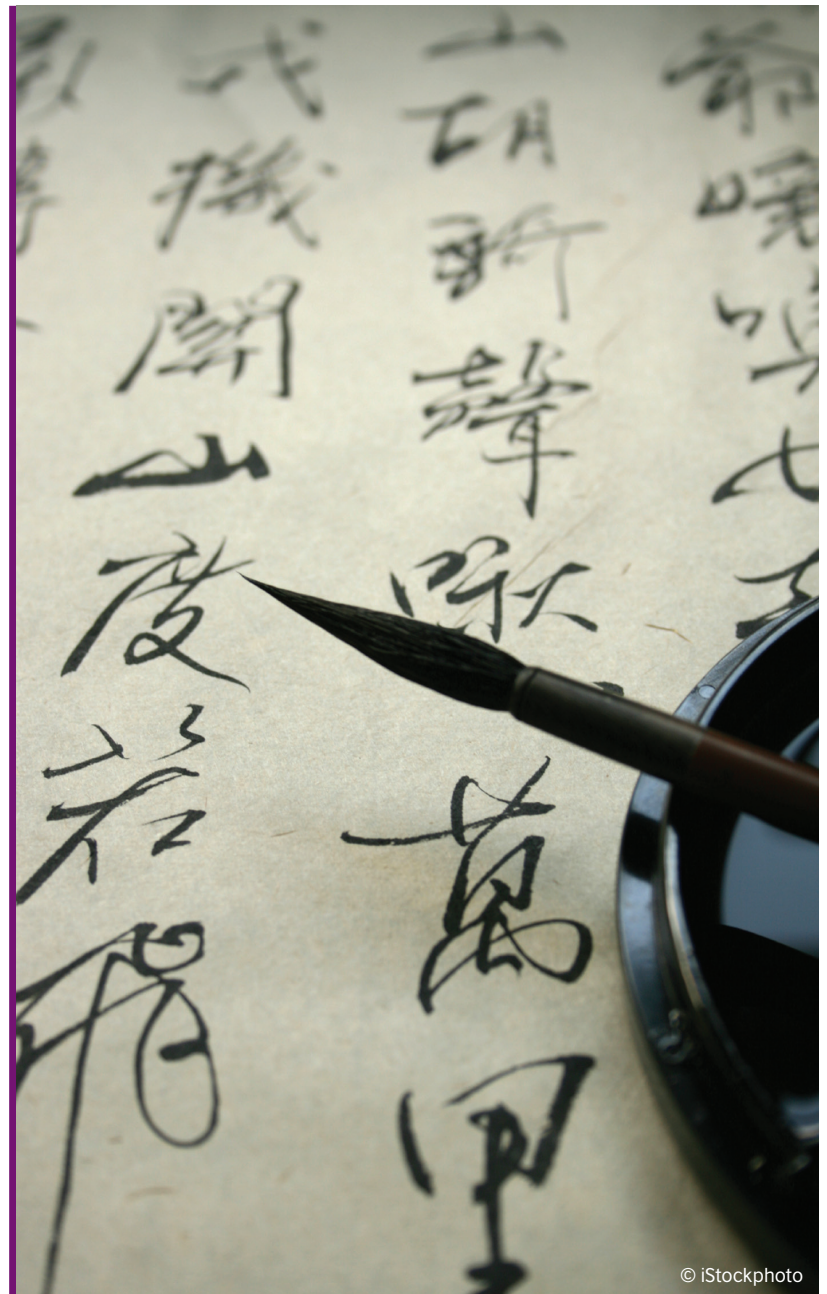 爺喚女
山胡騎聲啾萬里
戎機關山度若飛
© iStockphoto